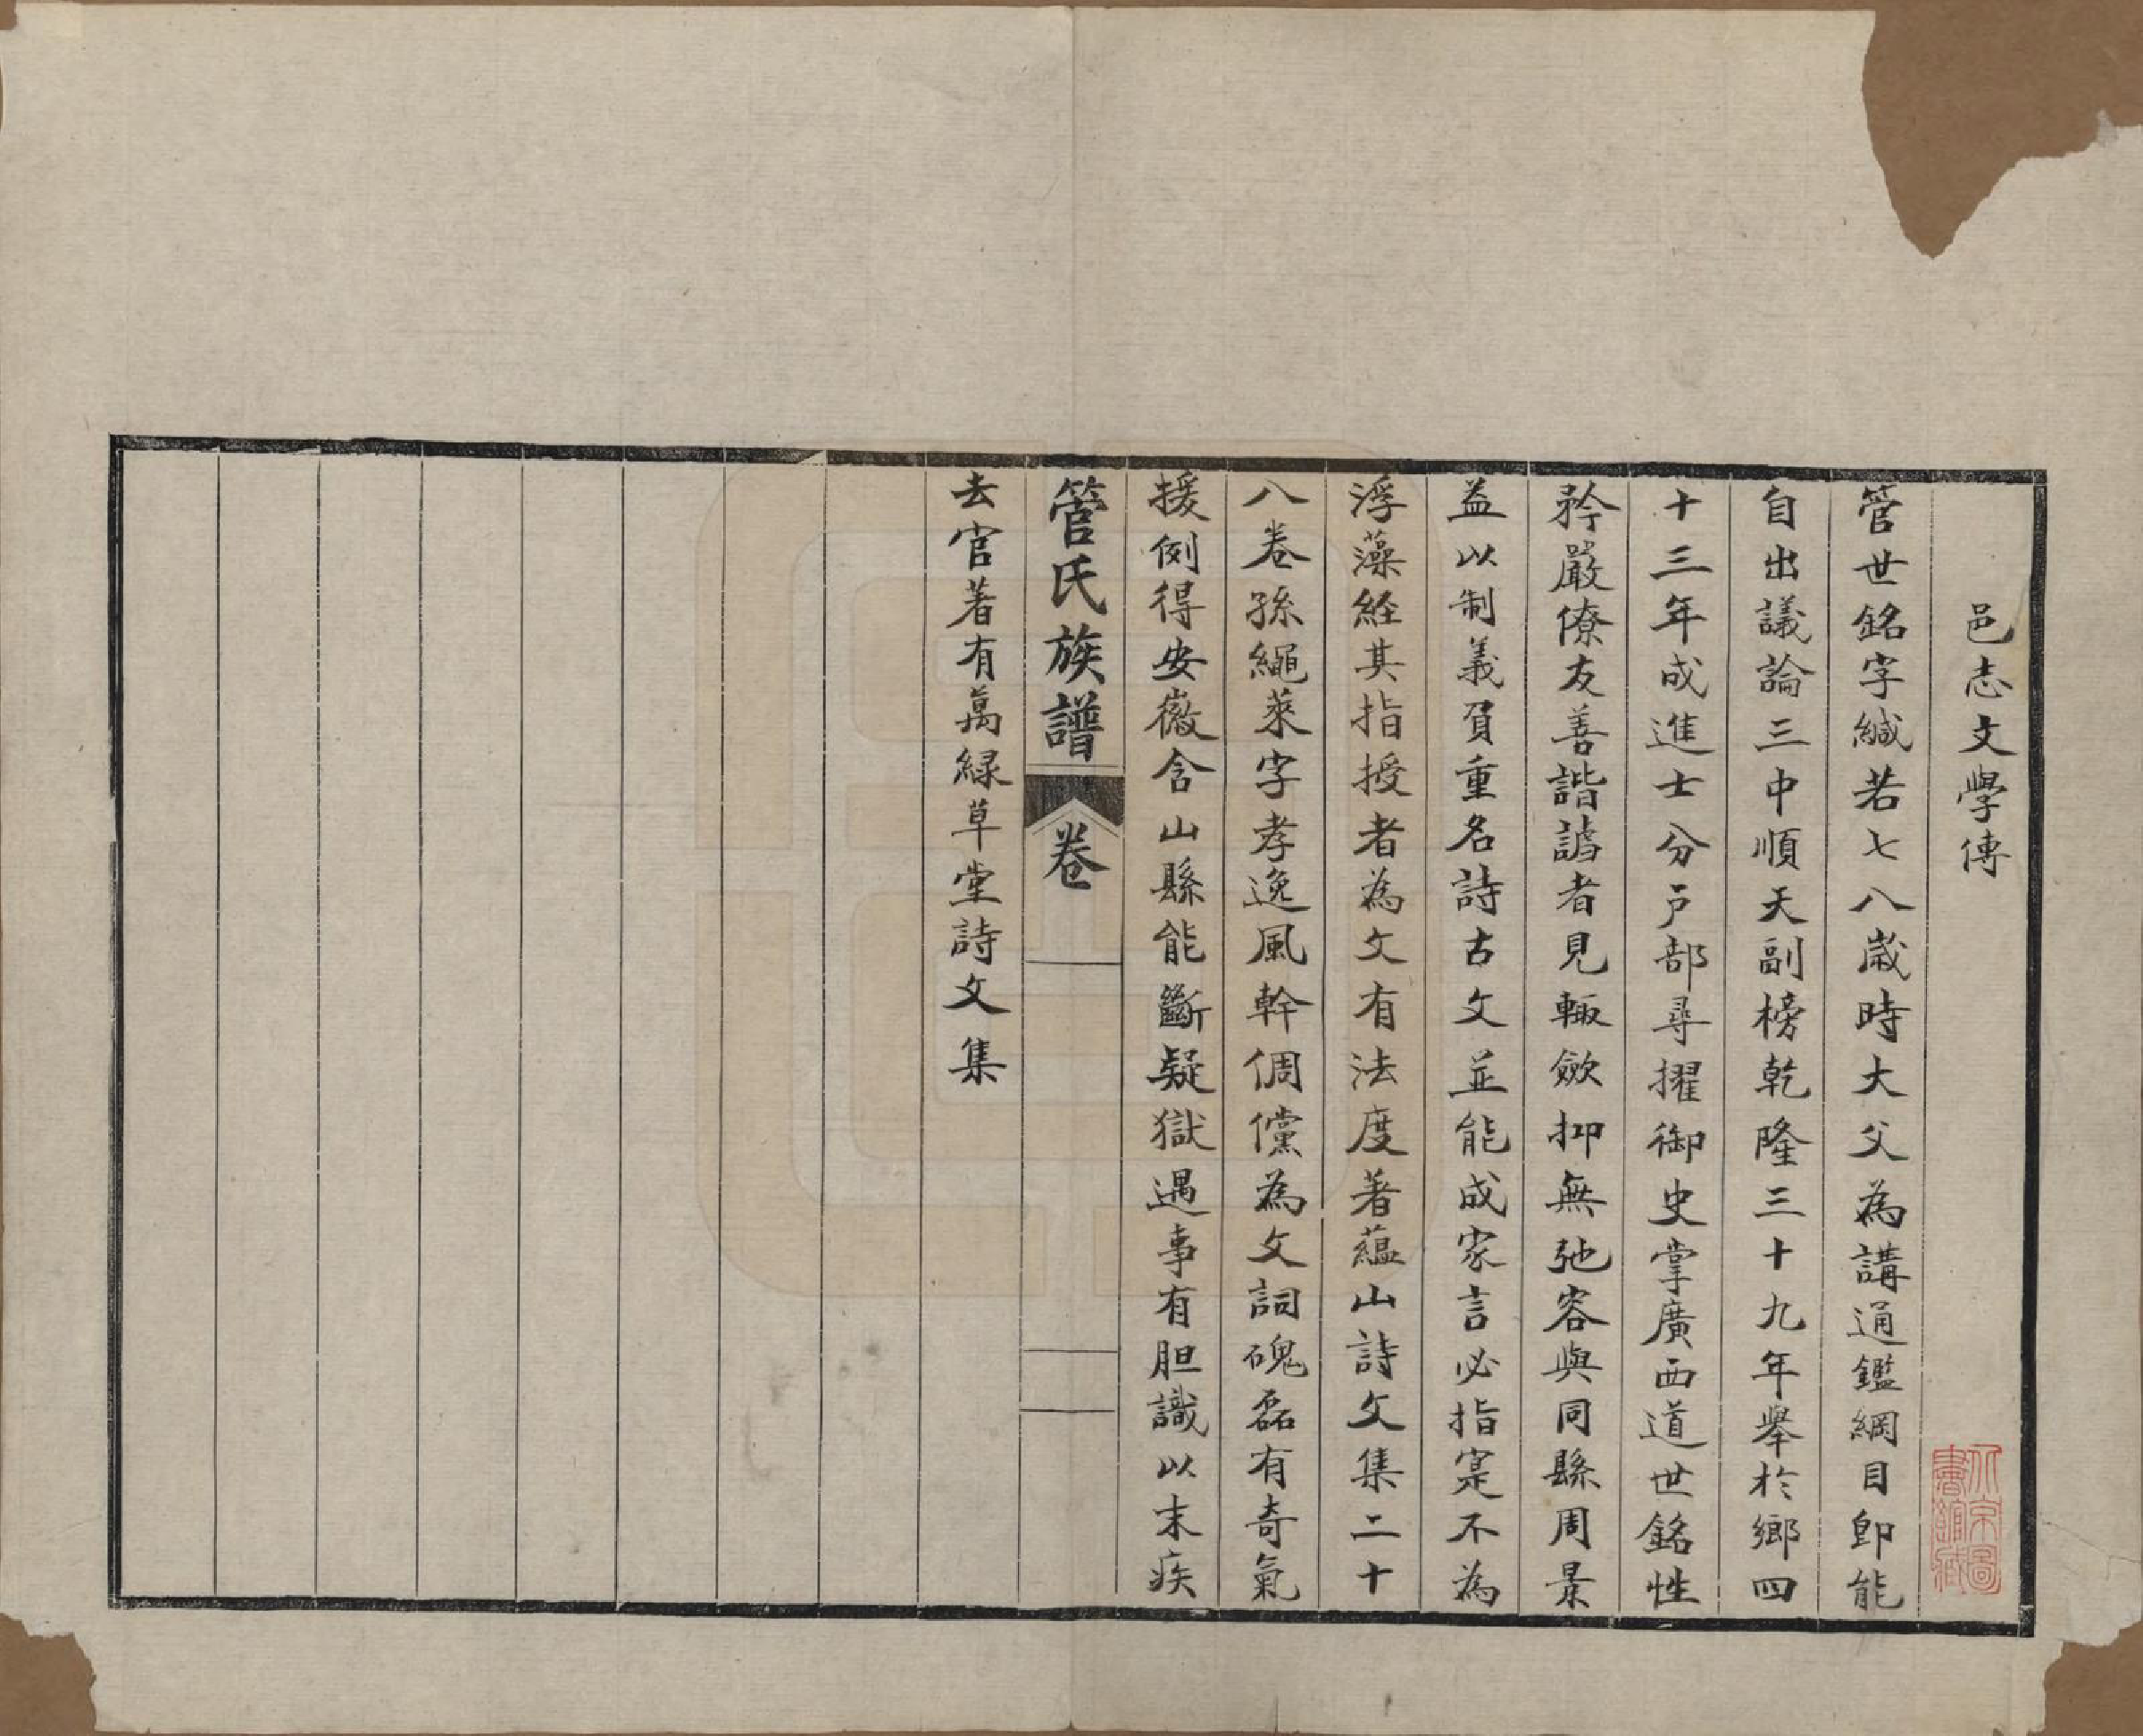 邑志文學傳
管世銘字緘若七八歲時大父為講通鑑綱目卽能
自出議論三中順天副榜乾隆三十九年舉於鄉四
十三年成進士分户部尋擢御史掌廣西道世銘性
矜嚴僚友善諧謔者見輒歛抑無弛容與同縣周景
益以制義負重名詩古文並能成家言必指寔不為
浮藻經其指授者為文有法度著蘊山詩文集二十
八卷孫繩萊字孝逸風幹倜儻為文詞磈磊有奇氣
援例得安徽含山縣能斷疑獄遇事有胆識以末疾
管氏族譜 卷
去官著有萬緑草堂詩文集